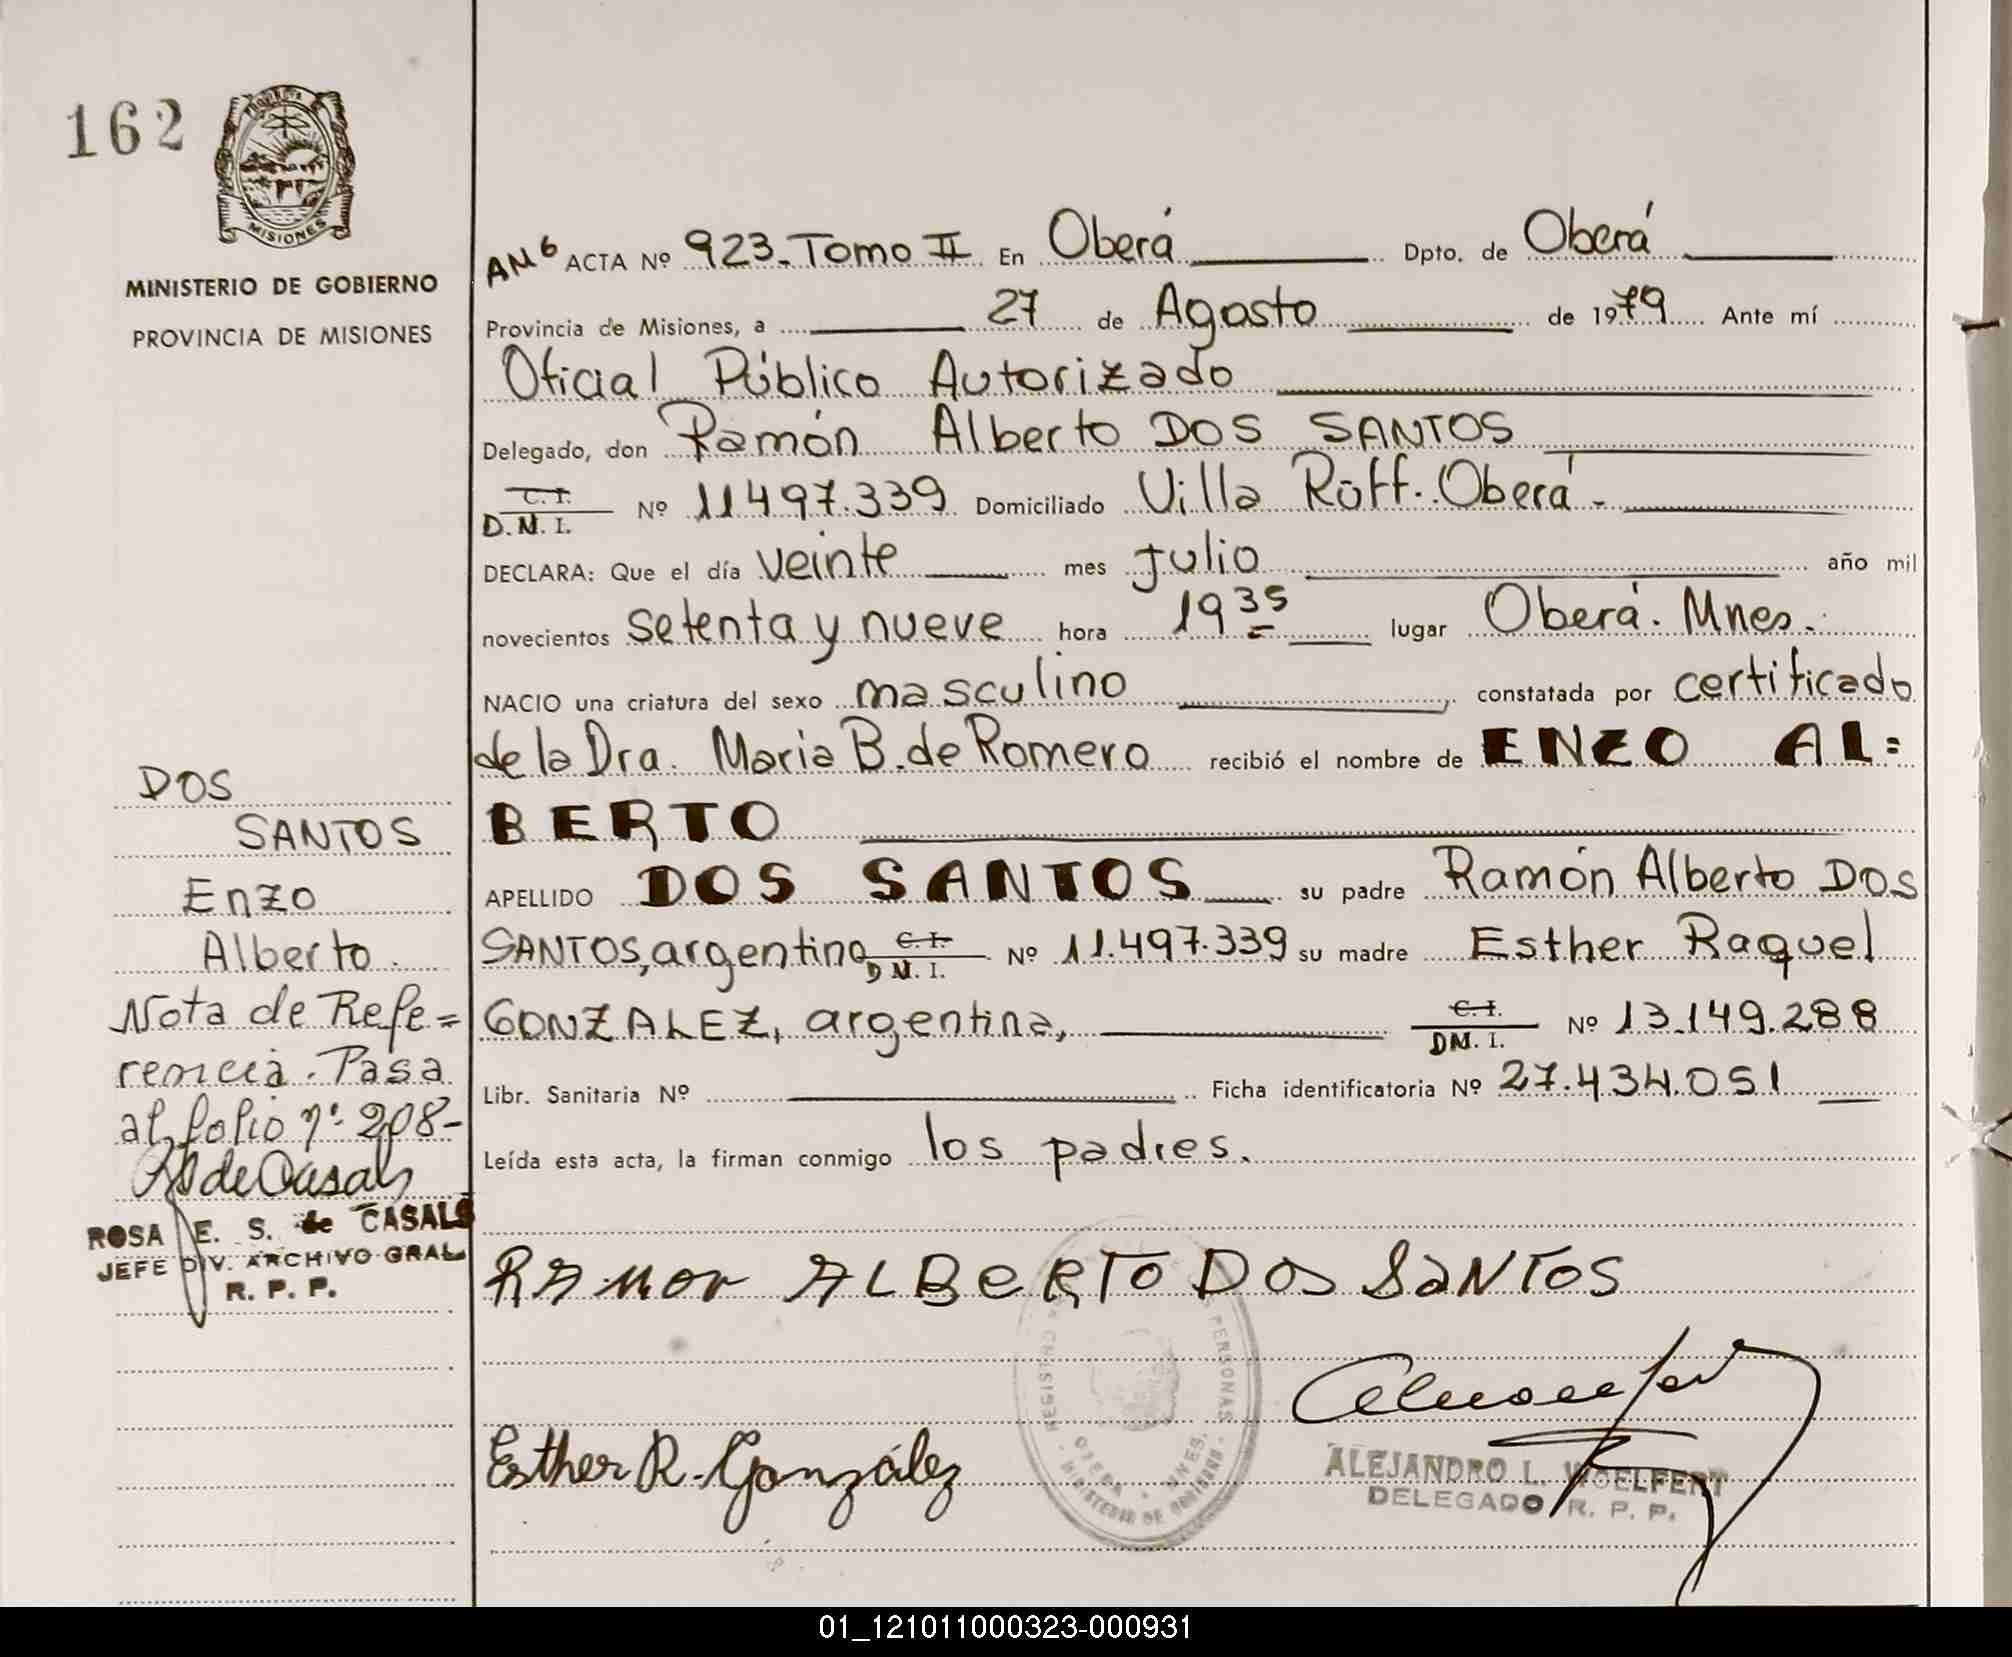 162
PROVINCIA
MISIONES
MINISTERIO DE GOBIERNO
PROVINCIA DE MISIONES
AMG ACTA Nº 923. Tomo II En Oberá Dpto. de Oberá
Provincia de Misiones, a 27 de Agosto de 1979 Ante mí
Oficial Público Autorizado
Delegado, don Ramón Alberto DOS SANTOS
C. I.
D.N.I. Nº 11497.339 Domiciliado Villa Rüff. Oberá.-
DECLARA: Que el día veinte mes julio año mil
novecientos setenta y nueve hora 19 35 lugar Oberá. Mnes.
NACIO una criatura del sexo masculino constatada por certificado
de la Dra. Maria B. de Romero recibió el nombre de ENZO AL=
BERTO
APELLIDO DOS SANTOS su padre Ramón Alberto DOS
SANTOS, argentino C. I. D N. I. Nº 11.497.339 su madre Esther Raquel
GONZALEZ, argentina, C. I. DN. I. Nº 13.149.288
Libr. Sanitaria Nº Ficha identificatoria Nº 27.434.051
Leída esta acta, la firman conmigo los padres.
DOS
SANTOS
Enzo
Alberto.
Nota de Refe=
rencia. Pasa
al folio nº 208-
RS de Casals
ROSA E. S. de CASALS
JEFE DIV. ARCHIVO GRAL
R. P. P.
RAMON ALBERTO DOS SANTOS
Esther R. González
REGISTRO PERSONAS
OBERA - MNES.
MINISTERIO DE GOBIERNO
ALEJANDRO L. WOELFERT
DELEGADO R. P. P.
01_121011000323-000931